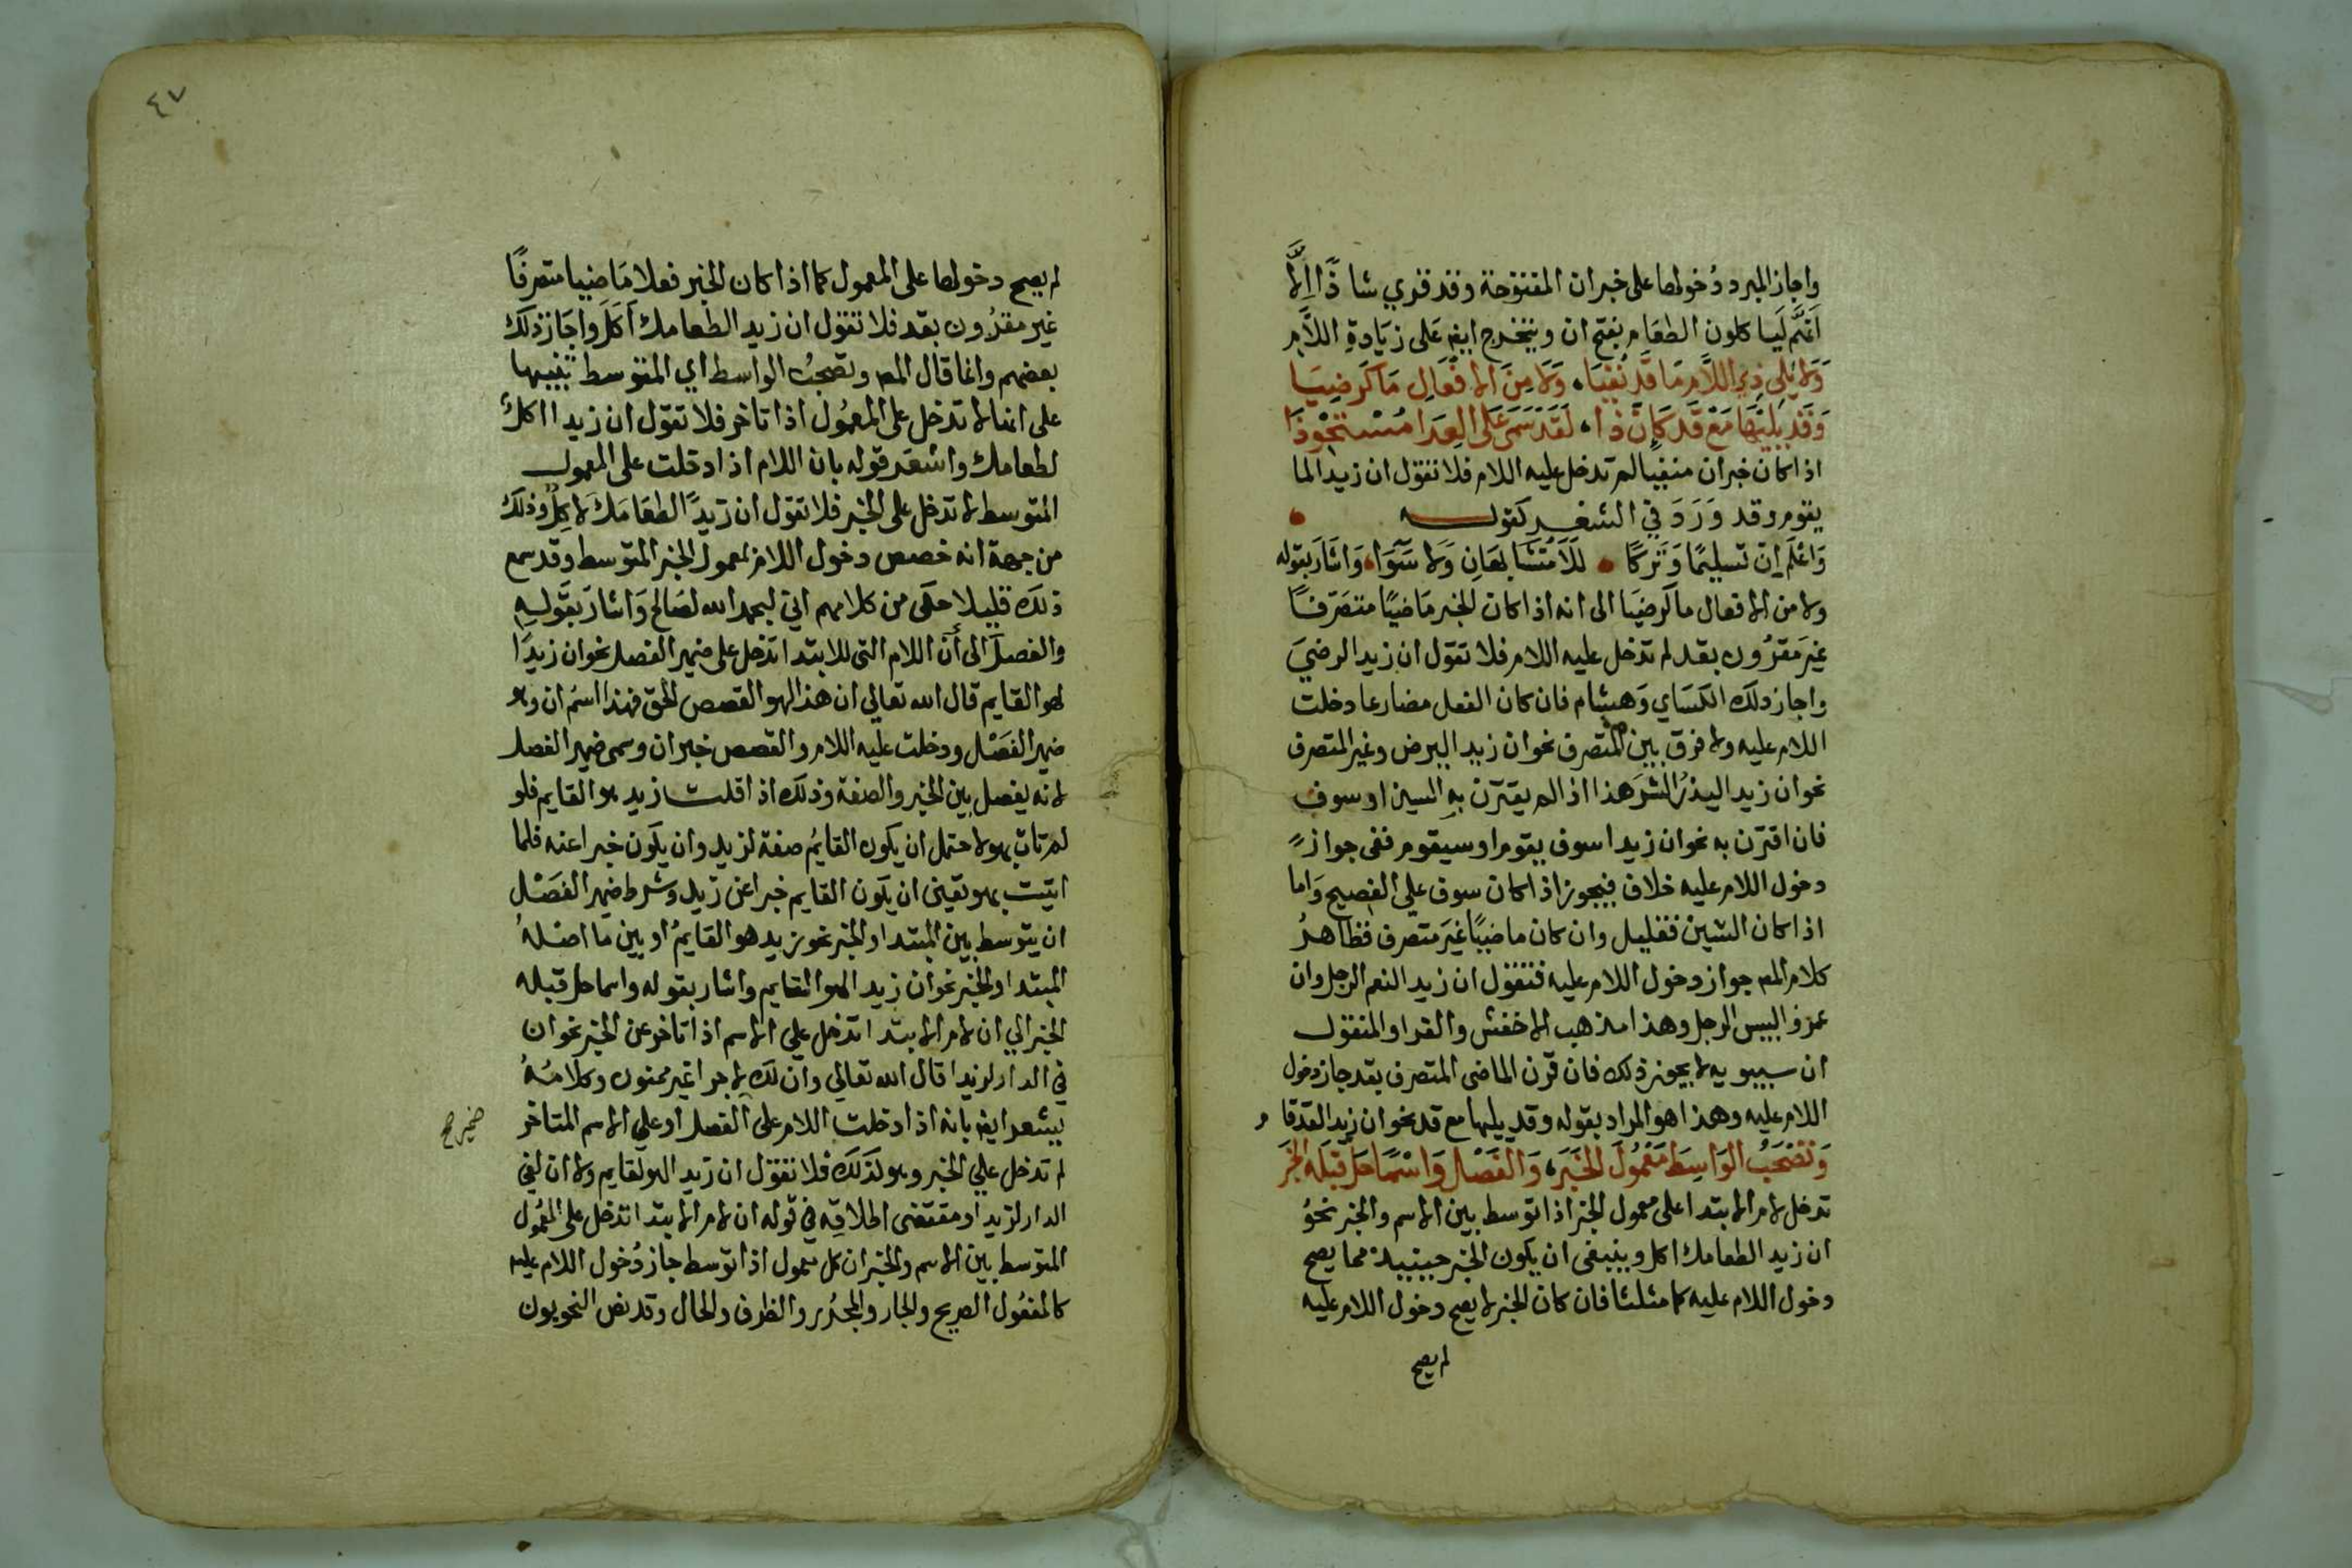 واجاز المبرد دُخولها على خبر ان المفتوحة وقد قري شاذًا اِلَّا
اَنَّهم لَيا كلون الطعَام بفتح ان ويتخرج ايض عَلى زيَادةِ اللَّام
وَلا يَلِي ذِي اللَّامِ مَا قَد نُفِيَا، وَلا مِنَ الا فْعَالِ مَا كَرضِيَا
وَقَد يَلِيْهَا مَعَ قَد كَاِنَّ ذَا، لَقَد سَمَى عَلَى العِدَا مُسْتَحْوِذَا
اذا كان خبر ان منفيا لم تدخل عليه اللام فلا تقول ان زيدا لما
يقوم وقد وَرَدَ في الشعر كقوله
وَاعْلَم اِن تسليمًا وَتَركًا لَلَا مُتَشَابهَانِ وَلا سَوَا، وَاشَارَ بقوله
ولا من الا فعال ما كرضيَا الى انه اذا كان الخبر مَاضيًا متصَرّفًا
غيرَ مَقرُون بقد لم تدخل عليه اللام فلا تقول ان زيدا لرضيَ
واجاز ذلك الكسَاي وَهشام فان كان الفعل مضارعا دخلت
اللام عليه ولا فرق بين المتصرف نحو ان زيدا ليرض وغير المتصرف
نحو ان زيدا ليذرُ الشرَ هذا اذا لم يقترن بهِ السين او سوف
فان اقترن به نحو ان زيدا سوف يقوم او سيقوم ففى جواز
دخول اللام عليه خلاف فيجوز اذا كان سوف علي الفصيح وَاما
اذا كان السين فقليل وان كان ماضيًا غيَر متصرف فظاهرُ
كلام المص جواز دخول اللام عليه فتقول ان زيدا لنعم الرجل وان
عمرًو البيس الرجل وهذا مذهب الاخفش والفرا والمنقول
ان سيبويه لا يجوز ذلك فان قرن الماضى المتصرف بقد جاز دخول
اللام عليه وهذا هو المراد بقوله وقد يليها مع قد نحو ان زيدا لقد قام
وَتَصْحَبُ الوَاسِطَ مَعْمُولَ الخَبَر، وَالفَصْلَ وَاسْمًا حَلَّ قَبْلَه الخَبَر
تدخل لام الا بتدا على معمول الخبر اذا توسط بين الاسم والخبر نحوُ
ان زيدا لطعامك اكل وينبغى ان يكون الخبر حينيذ مما يصح
دخول اللام عليه كما مثلنا فان كان الخبر لا يصح دخول اللام عليه
لم يصح
٤٧
لم يصح دخولها على المعمول كما اذا كان الخبر فعلا مَاضيا متصرفًا
غير مقرُون بقد فلا تقول ان زيدا لطعامك اَكَلَ واجَاز ذلك
بعضهم وانما قال المص وتصحبُ الواسط اي المتوسط تنبيها
على انها لا تدخل على المعمُول اذا تاخر فلا تقول ان زيدا اكل
لطعامك واشعَر قوله بان اللام اذا دخلت على المعمول
المتوسط لا تدخل على الخبر فلا تقول ان زيدًا لطعَامَكَ لاكِلٌ وذلك
من جهة انه خصص دخول اللام بمعمول الخبر المتوسط وقد سمع
ذلك قليلا حكى من كلامهم اني لبحمد الله لصَالح وَاشارَ بقَولهِ
والفصل الى أن اللام التى للابتدا تدخل على ضمير الفصل نحو ان زيدًا
لهو القايم قال الله تعالى ان هذا لهو القصص الحق فهذا اسم ان وهو
ضمير الفَصْل ودخلت عليه اللام والقصص خبر ان وسمى ضمير الفصل
لانه يفصل بين الخبر والصفة وذلك اذا قلت زيد هو القايم فلو
لم تات بهو لا حتمل ان يكون القايمُ صفة لزيد وان يكون خبرا عنه فلما
اتيت بهو تعين ان يكون القايم خبرا عن زيد وشرط ضمير الفصْل
ان يتوسط بين المبتدا والخبر نحو زيد هو القايمُ او بين ما اصلهُ
المبتدا والخبر نحو ان زيدا لهو القايم واشار بقوله واسما حل قبله
الخبر الي ان لام الا بتدا تدخل علي الاسم اذا تاخر عن الخبر نحو ان
في الدار لزيدا قال الله تعالي وان لك لا جرا غير ممنون وكلامُهُ
يشعر ايض بانه اذا دخلت اللام على الفصل او علي الاسم المتاخر
ضمير صح
لم تدخل علي الخبر وهو كذلك فلا تقول ان زيدا لهو لقايم ولا ان لفي
الدار لزيدا ومقتضى اطلاقِه في قوله ان لام الا بتدا تدخل على المعمُول
المتوسط بين الاسم والخبر ان كل معمول اذا توسط جاز دُخول اللام عليه
كالمفعُول الصريح والجار والمجرُور والظرف والحال وقد نص النحويون